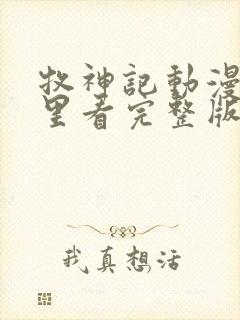 牧神記動漫
里看完整版
我真想活